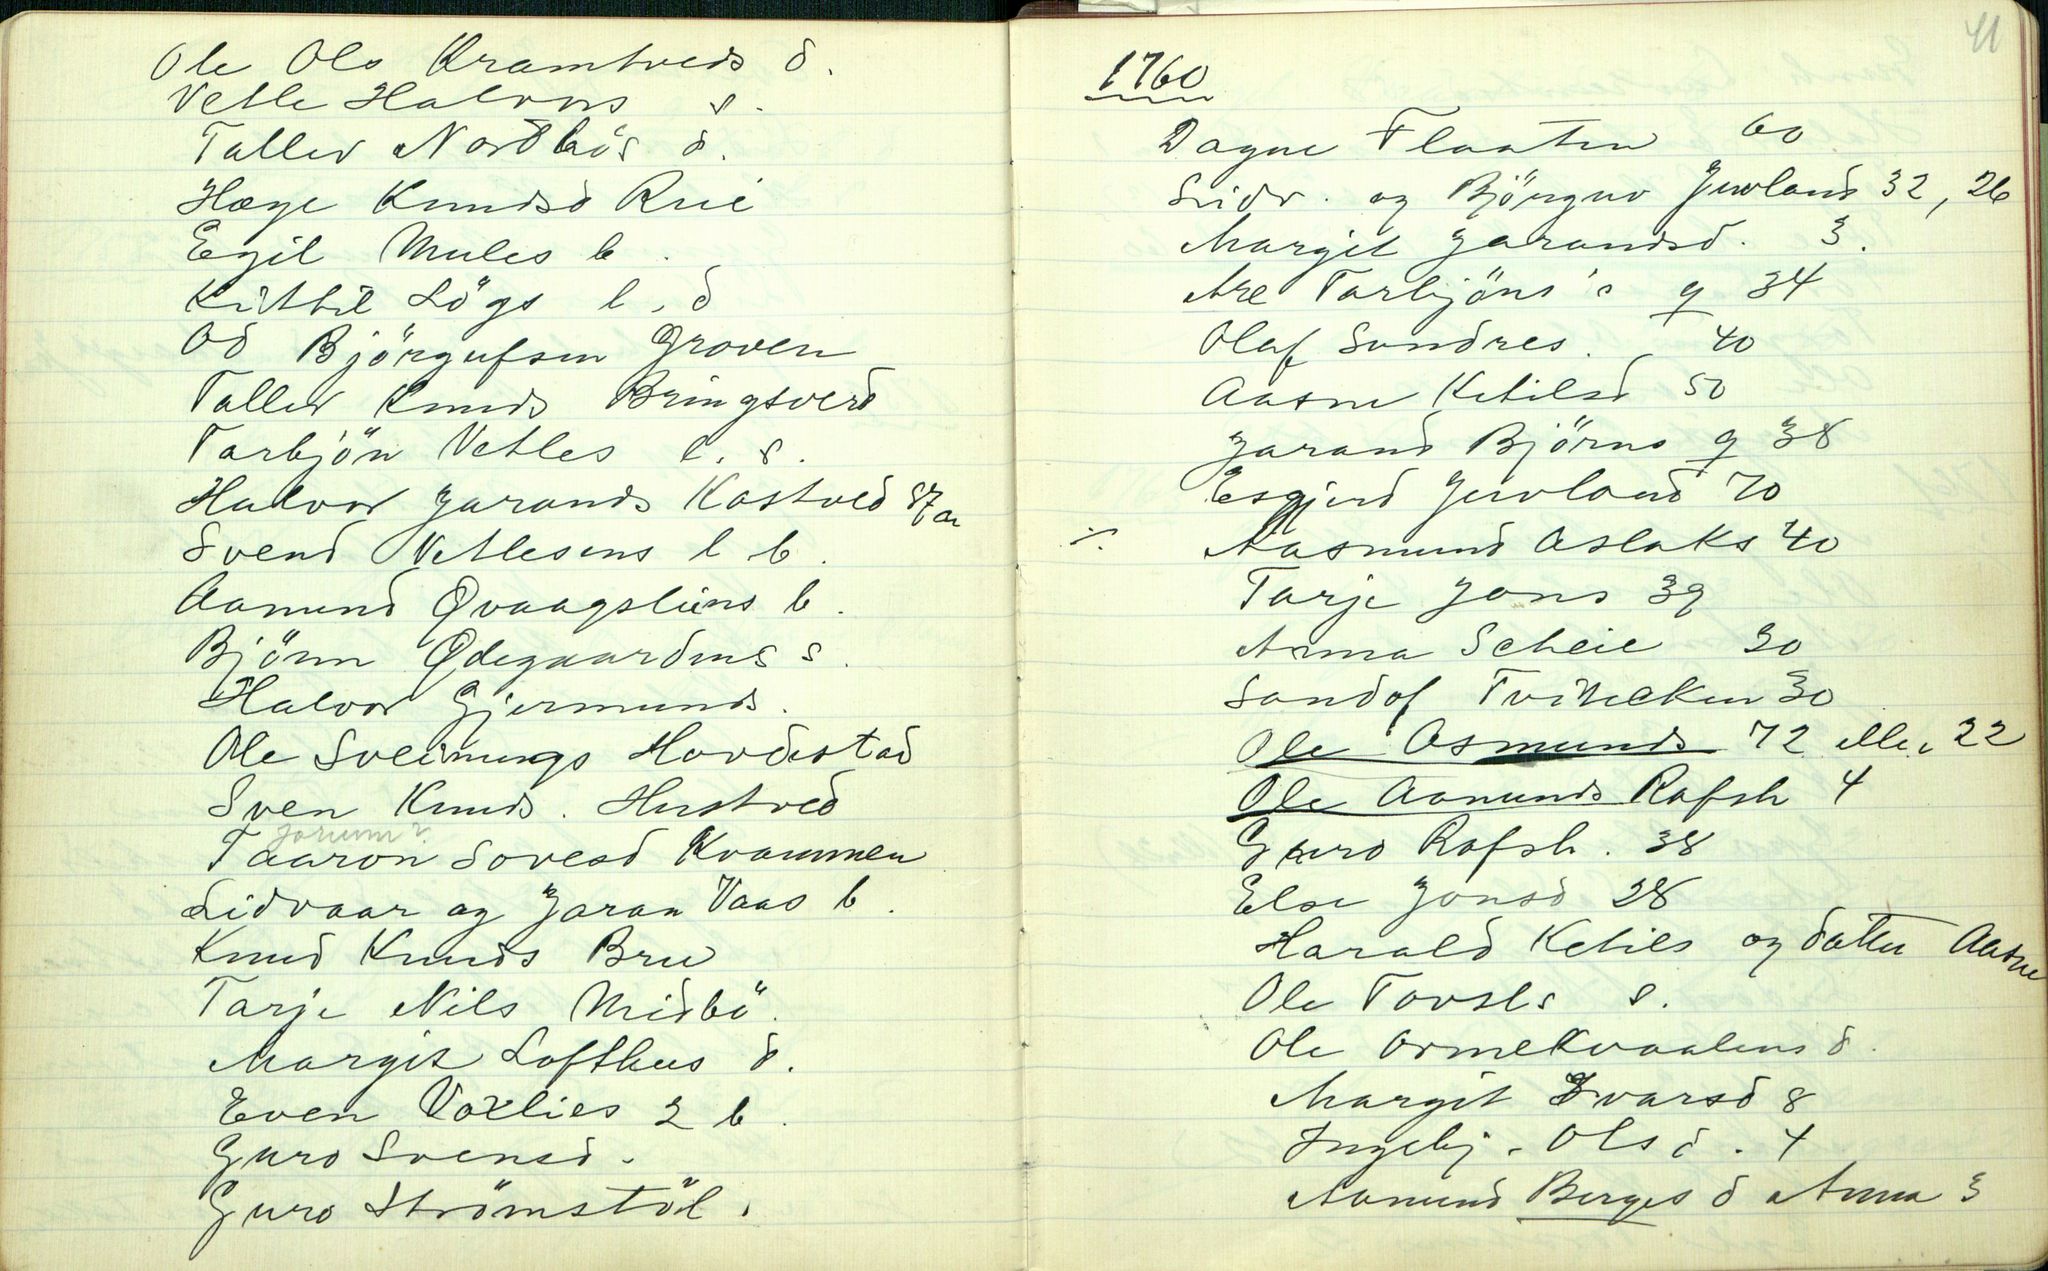 Ole Ols Kramtveds d.
Vetle Halvors s.
Tallev Nordbös d.
Hæge Knudsd Rui
Egil Mules b.
Kittil Lögs l. d
Od Björgufsen Groven
Tallev Knuds Bringsverd
Tarbjön Vetles l. s.
Halvor Jarands Kostved 87 a
Svend Vetlesens l b.
Aanund Qvaagsliens b.
Björn Ødegaardens s.
Halvor Gjermunds.
Ole Sveinungs Hovdestad
Sven Knuds. Hustved
Jorunn?
Taaron Sovesd Kvammen
Lidvaar og Jaran Vaas b.
Knud Knuds Bru
Tarje Nils Midbö.
Margit Lofthus d.
Even Voxlies 2 b.
Guro Svensd.
Guro Strömstöl.
41
1760
Dagne Flaaten 60
Sidv. og Björguv Juvland 32, 26
Margit Jarandsd. 3.
Are Tarbjöns's g 34
Olaf Sundres. 40
Aasne Ketilsd 50
Jarand Björns g 38
Esgjerd Juvland 70
⁒ Aasmund Aslaks 40
Tarje Jons 39
Anna Scheie 30
Sondof Tvitekken 30
Ole Asmunds 72 eller 22
Ole Aanunds Rafsh 4
Guro Rafsh. 38
Else Jonsd 28
Harald Ketils og datter Aasne
Ole Tovsls s.
Ole Ormekvaalens d.
Margit Ivarsd 8
Ingebj. Olsd. 4
Aanund Berges d Anna 3